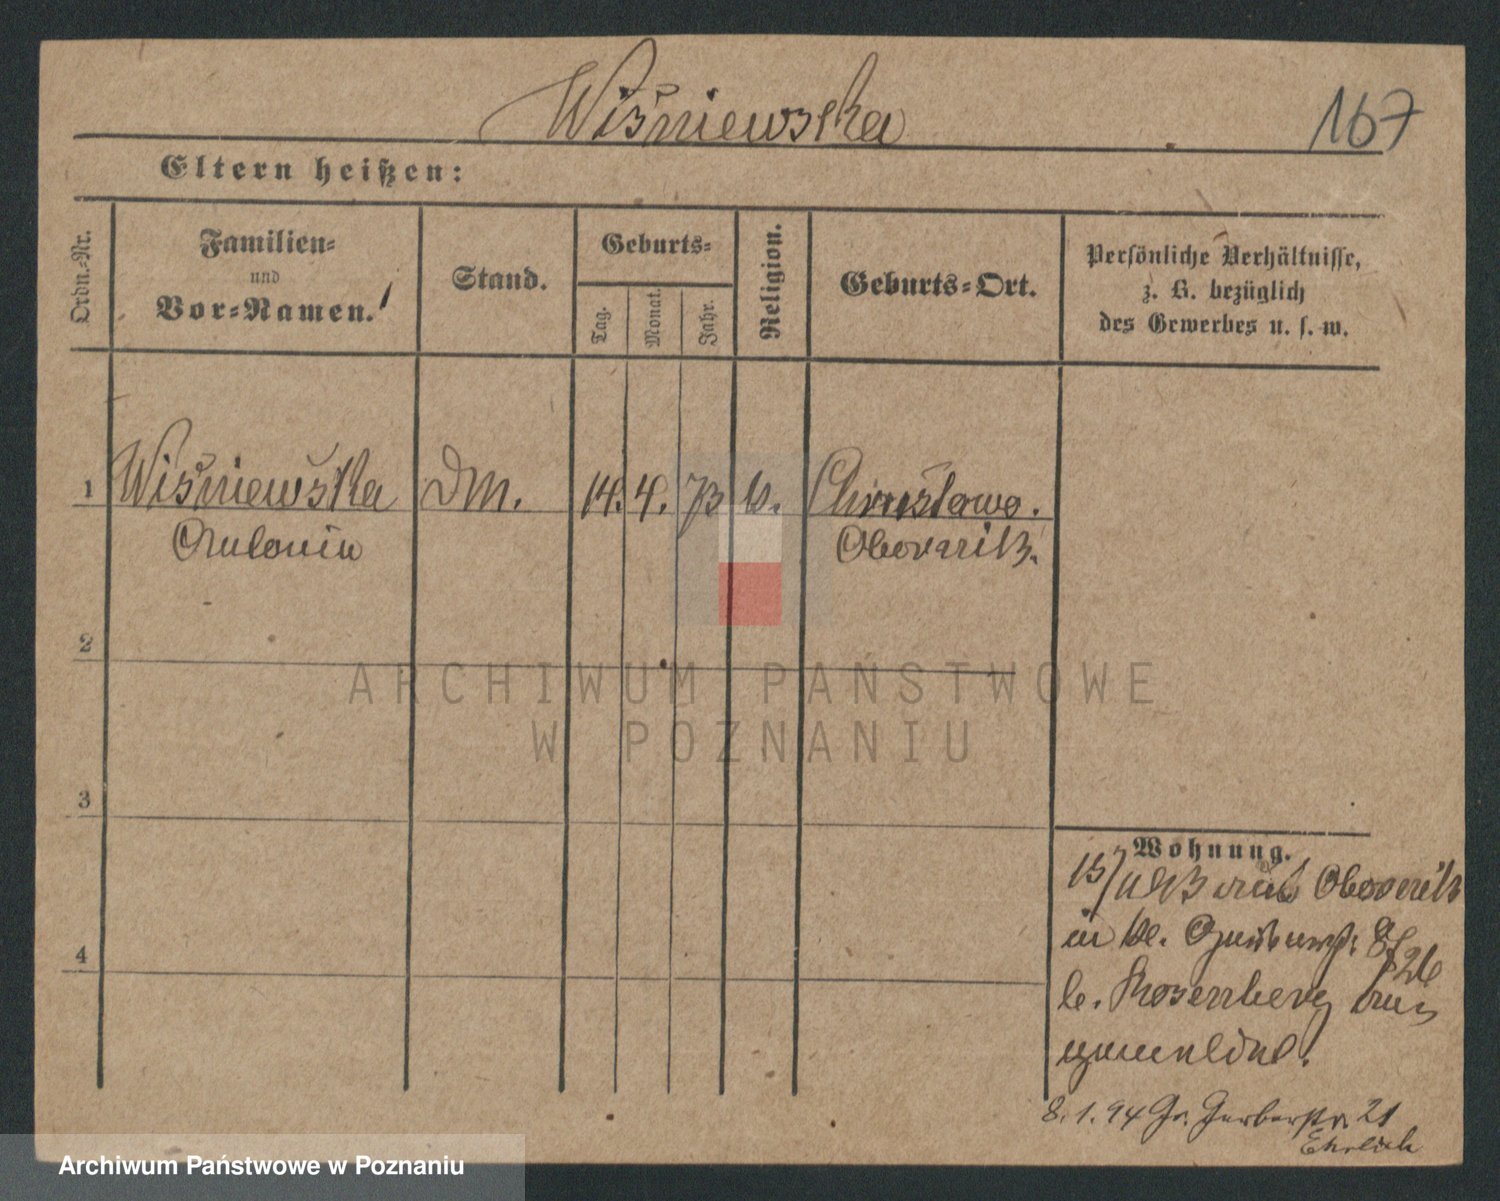 Wiśniewska
167
Eltern heißen:
Ordn.-Nr.
Familien-
und
Vor-Namen.
Stand.
Geburts-
Tag.
Monat.
Jahr.
Religion.
Geburts-Ort.
Persönliche Verhältnisse,
z. B. bezüglich
des Gewerbes u. s. w.
1 Wiśniewska DM. 14. 4. 73 k.
Antonin
Obornik.
2
3
4
ARCHIWUM PAŃSTWOWE
W POZNANIU
Wohnung.
93 aus Obornik
in kl. 26
b. Rosenberg
gemeldet.
8.1.94 Gr. Gerberstr. 21
Ehrlich
Archiwum Państwowe w Poznaniu